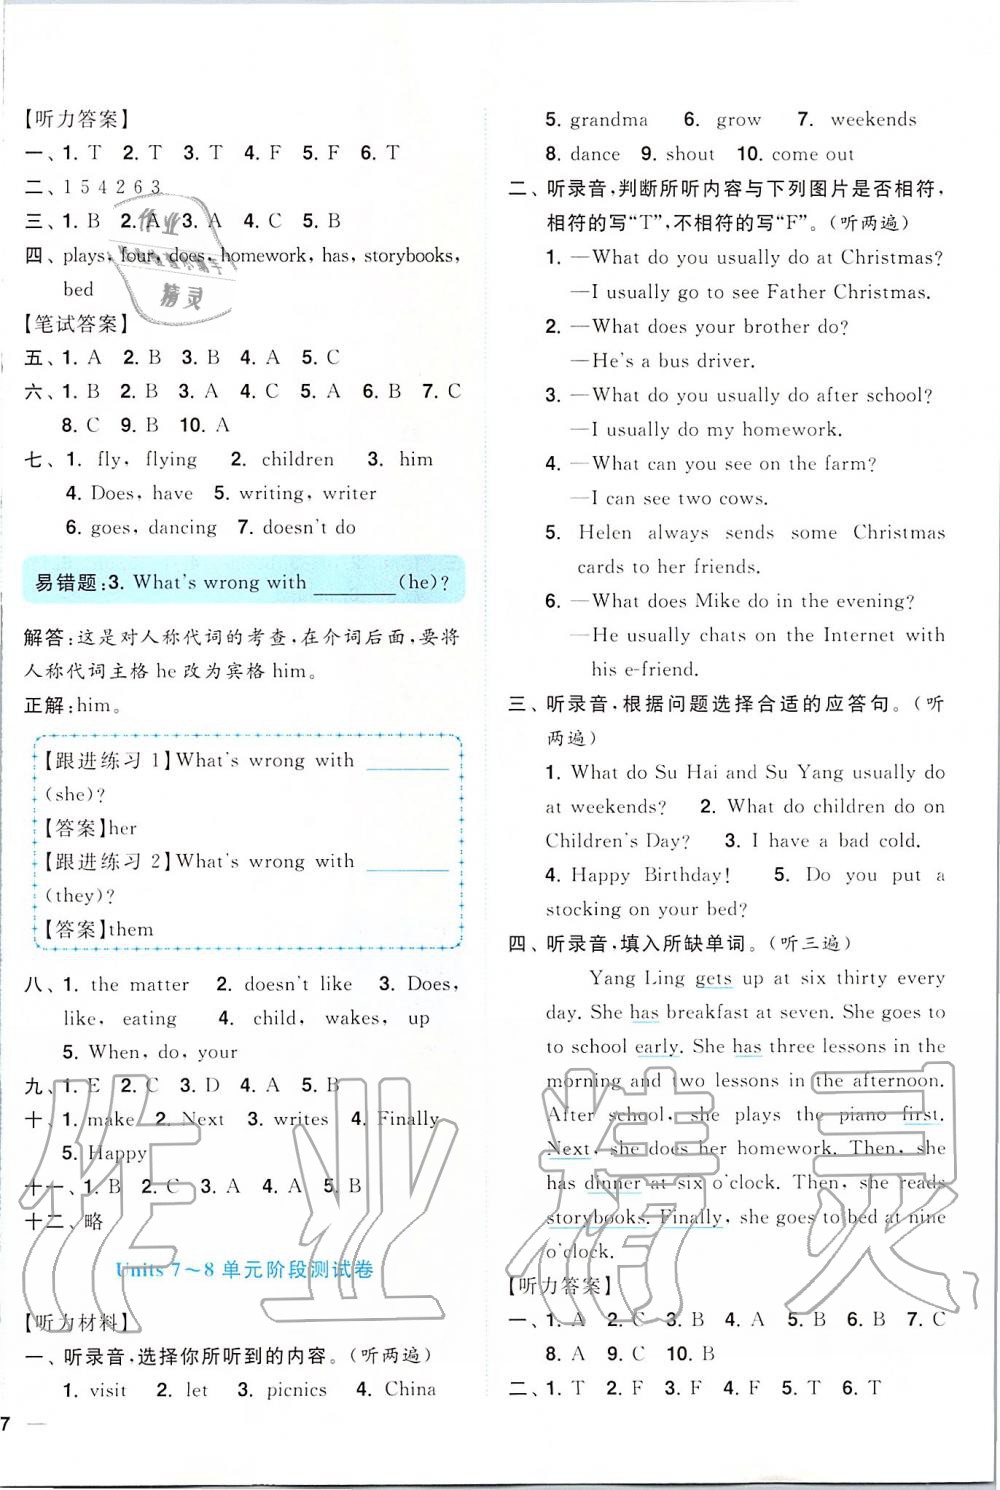 【听力答案】
一、1. T 2. T 3. T 4. F 5. F 6. T
二、1 5 4 2 6 3
三、1. B 2. A 3. A 4. C 5. B
四、plays, four, does, homework, has, storybooks,
bed
【笔试答案】
五、1. A 2. B 3. B 4. A 5. C
六、1. B 2. B 3. A 4. C 5. A 6. B 7. C
8. C 9. B 10. A
七、1. fly, flying 2. children 3. him
4. Does, have 5. writing, writer
6. goes, dancing 7. doesn't do
易错题:3. What's wrong with ________ (he)?
解答:这是对人称代词的考查,在介词后面,要将
人称代词主格 he 改为宾格 him。
正解:him。
【跟进练习 1】What's wrong with ________
(she)?
【答案】her
【跟进练习 2】What's wrong with ________
(they)?
【答案】them
八、1. the matter 2. doesn't like 3. Does,
like, eating 4. child, wakes, up
5. When, do, your
九、1. E 2. C 3. D 4. A 5. B
十、1. make 2. Next 3. writes 4. Finally
5. Happy
十一、1. B 2. C 3. A 4. A 5. B
十二、略
Units 7～8 单元阶段测试卷
【听力材料】
一、听录音,选择你所听到的内容。(听两遍)
1. visit 2. let 3. picnics 4. China
7
5. grandma 6. grow 7. weekends
8. dance 9. shout 10. come out
二、听录音,判断所听内容与下列图片是否相符,
相符的写“T”,不相符的写“F”。(听两遍)
1. —What do you usually do at Christmas?
—I usually go to see Father Christmas.
2. —What does your brother do?
—He's a bus driver.
3. —What do you usually do after school?
—I usually do my homework.
4. —What can you see on the farm?
—I can see two cows.
5. Helen always sends some Christmas
cards to her friends.
6. —What does Mike do in the evening?
—He usually chats on the Internet with
his e-friend.
三、听录音,根据问题选择合适的应答句。(听
两遍)
1. What do Su Hai and Su Yang usually do
at weekends? 2. What do children do on
Children's Day? 3. I have a bad cold.
4. Happy Birthday! 5. Do you put a
stocking on your bed?
四、听录音,填入所缺单词。(听三遍)
Yang Ling gets up at six thirty every
day. She has breakfast at seven. She goes to
to school early. She has three lessons in the
morning and two lessons in the afternoon.
After school, she plays the piano first.
Next, she does her homework. Then, she
has dinner at six o'clock. Then, she reads
storybooks. Finally, she goes to bed at nine
o'clock.
【听力答案】
一、1. A 2. C 3. B 4. A 5. B 6. B 7. C
8. A 9. C 10. B
二、1. T 2. F 3. F 4. F 5. T 6. T
作业精灵